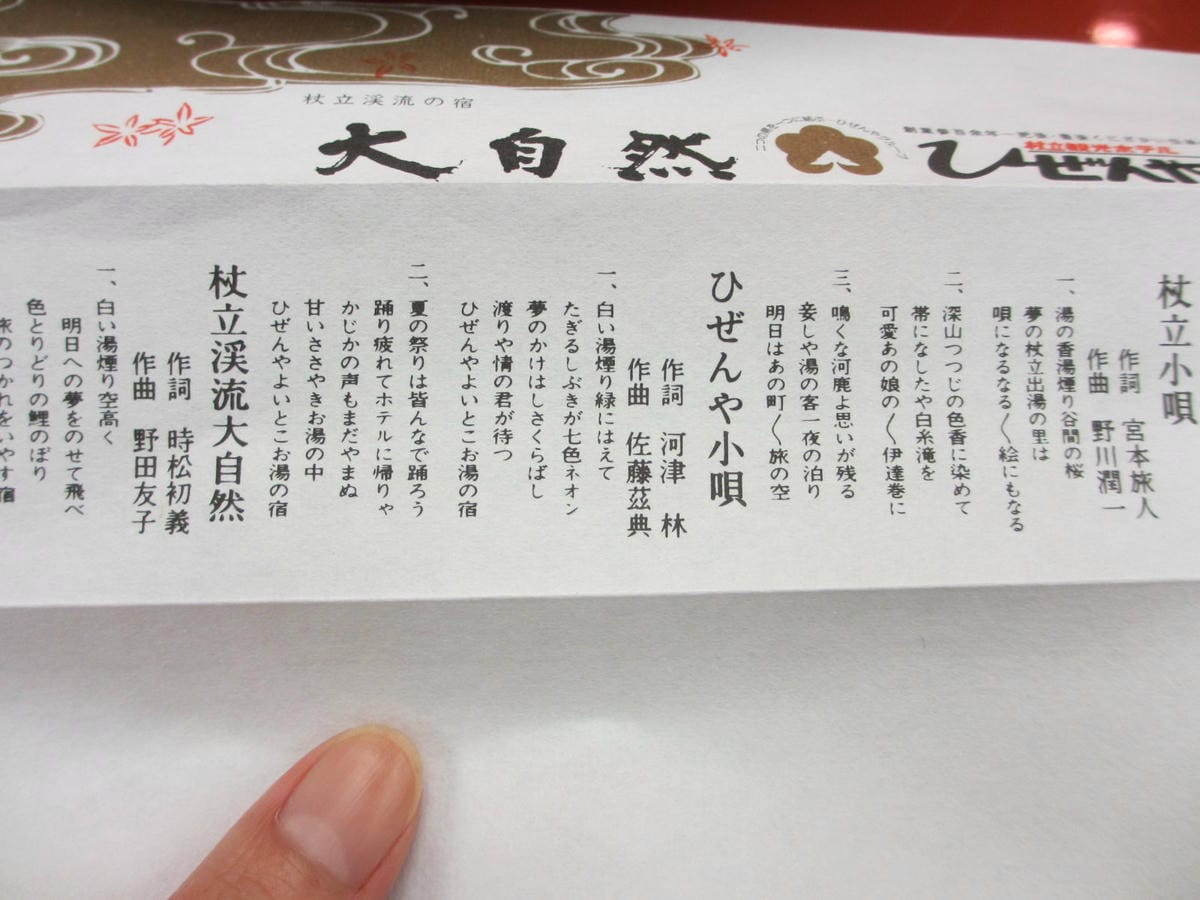 杖立渓流の宿
大自然
杖立観光ホテル
ひぜんや
杖立小唄
作詞 宮本旅人
作曲 野川潤一
一、湯の香湯煙り谷間の桜
夢の杖立出湯の里は
唄になるなる〱絵にもなる
二、深山つつじの色香に染めて
帯になしたや白糸滝を
可愛あの娘の〱伊達巻に
三、鳴くな河鹿よ思いが残る
妾しや湯の客一夜の泊り
明日はあの町〱旅の空
ひぜんや小唄
作詞 河津 林
作曲 佐藤茲典
一、白い湯煙り緑にはえて
たぎるしぶきが七色ネオン
夢のかけはしさくらばし
渡りや情の君が待つ
ひぜんやよいとこお湯の宿
二、夏の祭りは皆んなで踊ろう
踊り疲れてホテルに帰りゃ
かじかの声もまだやまぬ
甘いささやきお湯の中
ひぜんやよいとこお湯の宿
杖立渓流大自然
作詞 時松初義
作曲 野田友子
一、白い湯煙り空高く
明日への夢をのせて飛べ
色とりどりの鯉のぼり
旅のつかれをいやす宿